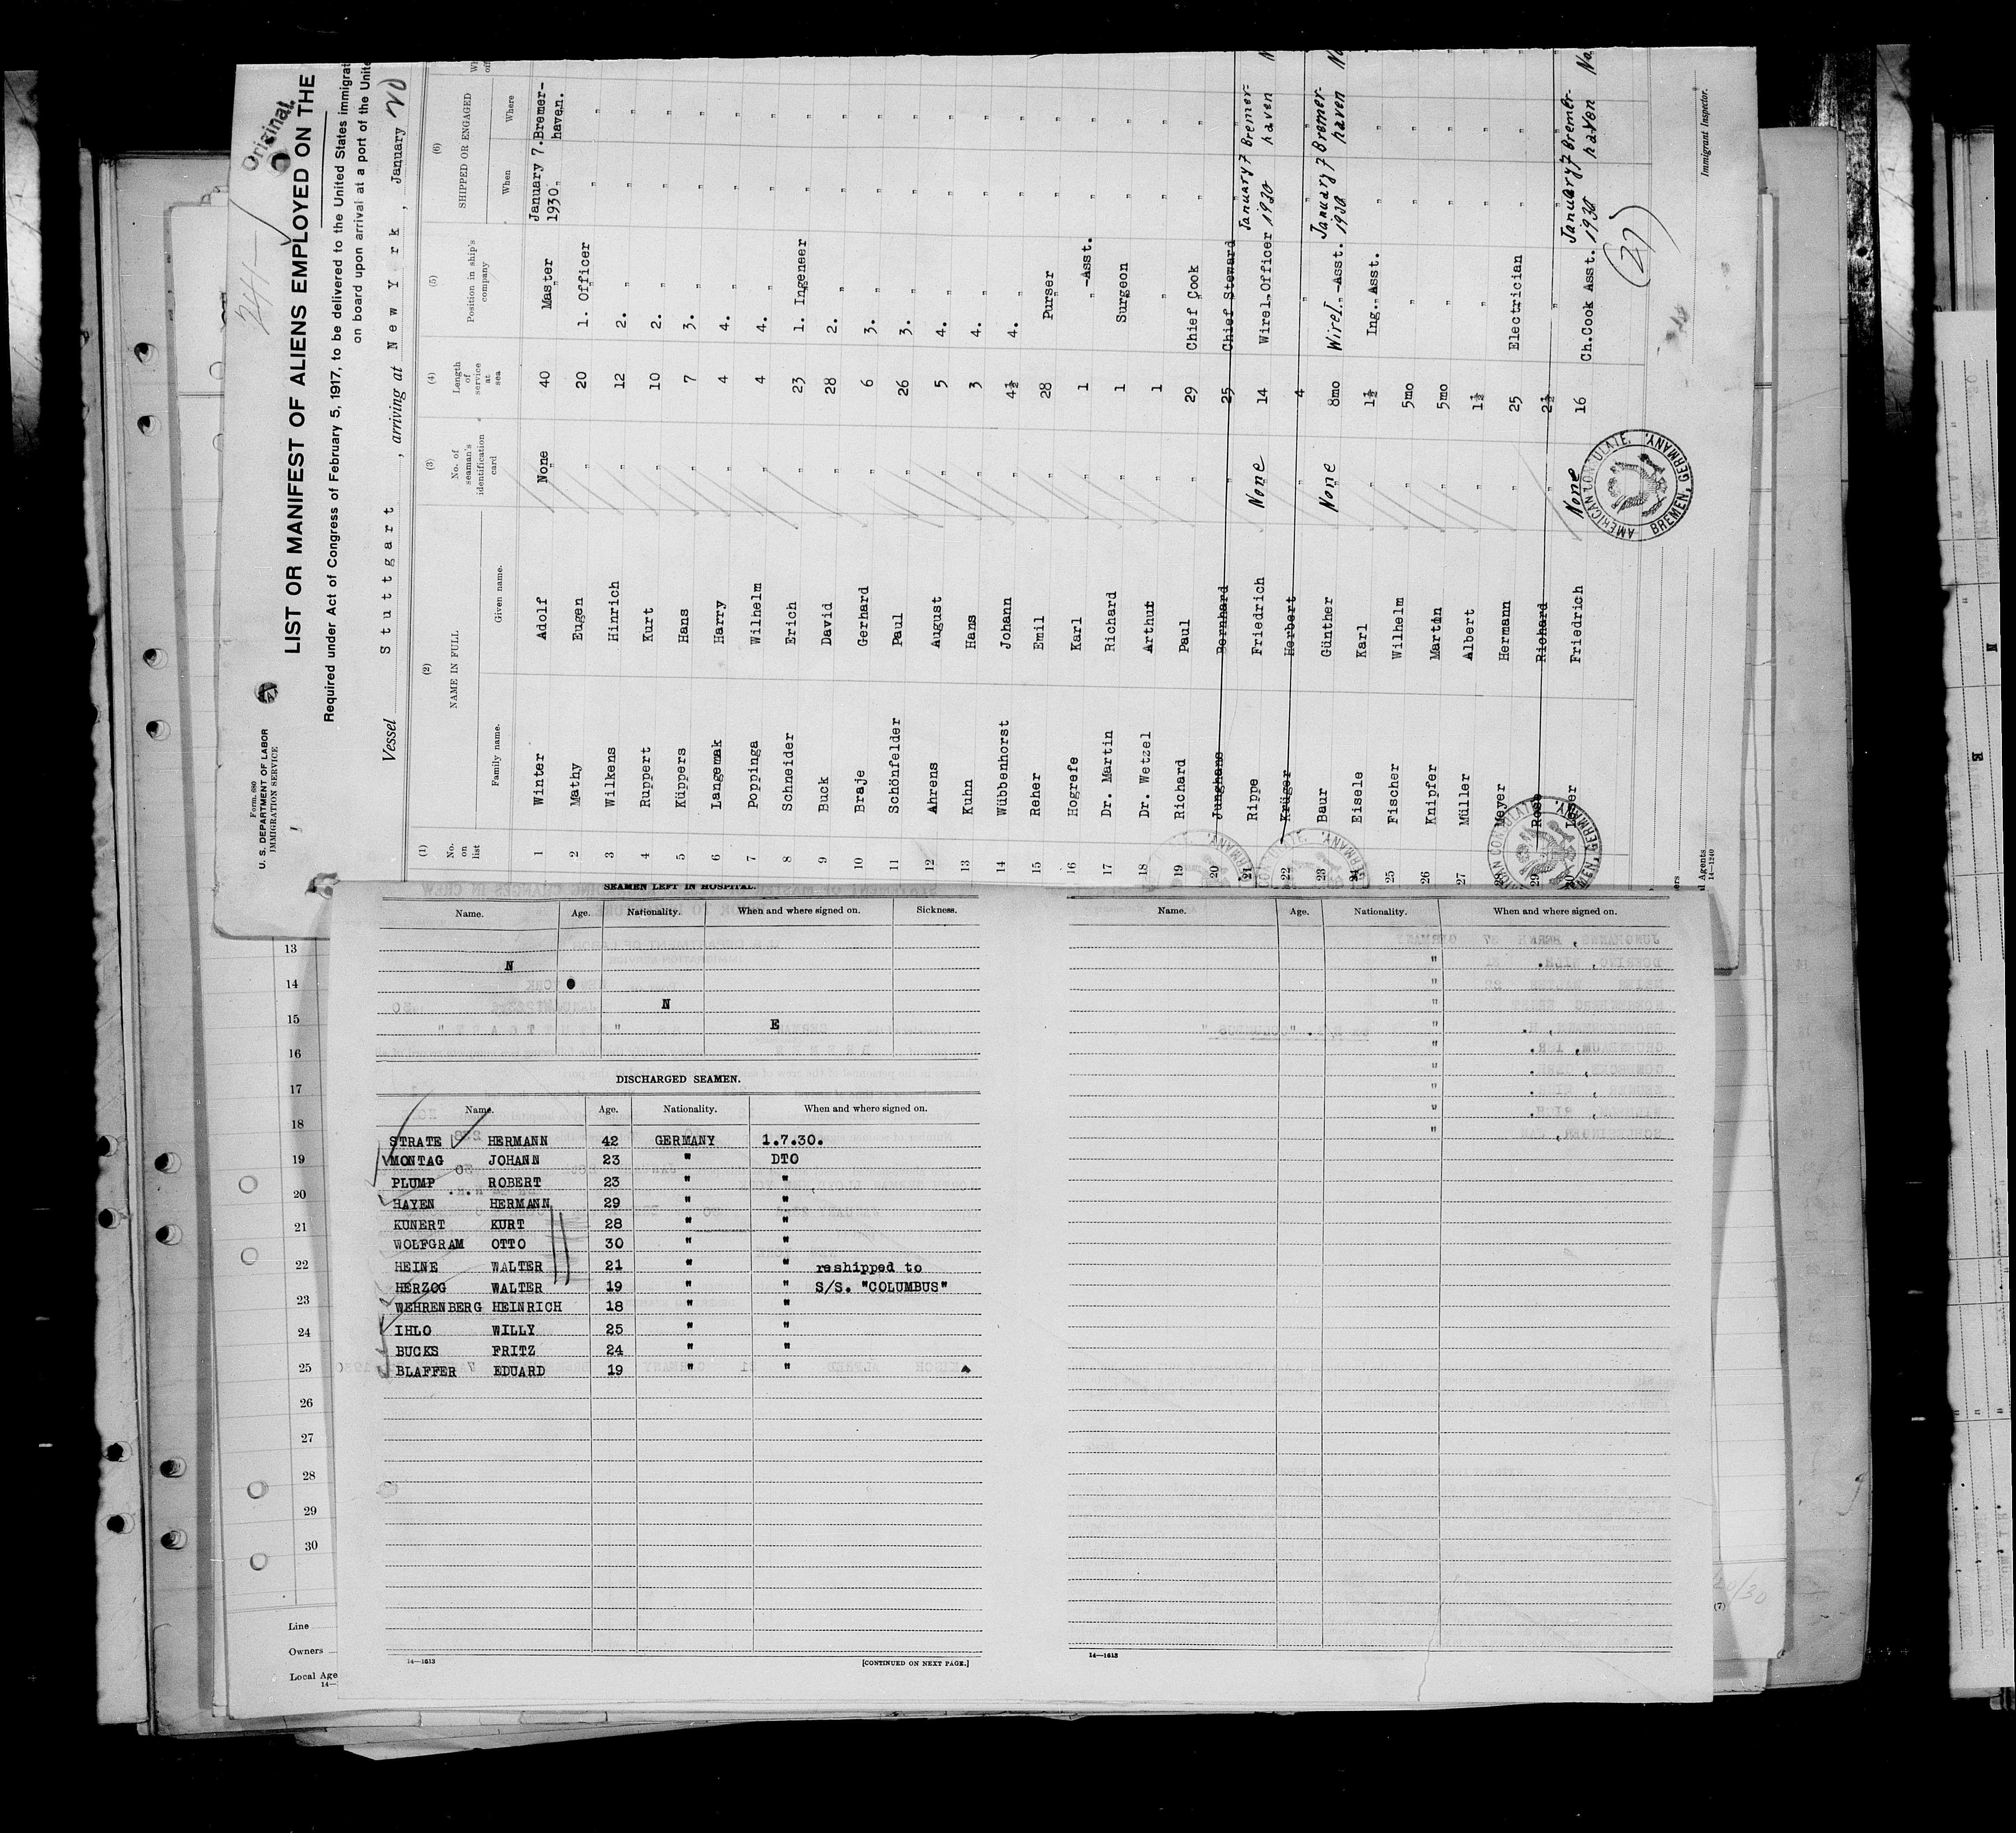 Original
241
Form 680
U. S. DEPARTMENT OF LABOR
IMMIGRATION SERVICE
LIST OR MANIFEST OF ALIENS EMPLOYED ON THE
Required under Act of Congress of February 5, 1917, to be delivered to the United States immigrat
on board upon arrival at a port of the Unite
Vessel Stuttgart , arriving at New York , January
(1) (2) (3) (4) (5) (6)
No. on list NAME IN FULL No. of seaman's identification card Length of service at sea Position in ship's company SHIPPED OR ENGAGED
Family name. Given name. When Where
1 Winter Adolf None 40 Master January 7. 1930. Bremer-haven.
2 Mathy Eugen " 20 1. Officer " "
3 Wilkens Hinrich " 12 2. " " "
4 Ruppert Kurt " 10 2. " " "
5 Küppers Hans " 7 3. " " "
6 Langemak Harry " 4 4. " " "
7 Poppinga Wilhelm " 4 4. " " "
8 Schneider Erich " 23 1. Ingeneer " "
9 Buck David " 28 2. " " "
10 Braje Gerhard " 6 3. " " "
11 Schönfelder Paul " 26 3. " " "
12 Ahrens August " 5 4. " " "
13 Kuhn Hans " 3 4. " " "
14 Wübbenhorst Johann " 4½ 4. " " "
15 Reher Emil " 28 Purser " "
16 Hogrefe Karl " 1 " -Asst. " "
17 Dr. Martin Richard " 1 Surgeon " "
18 Dr. Wetzel Arthur " 1 " " "
19 Richard Paul " 29 Chief Cook " "
20 Junghans Bernhard " 25 Chief Steward " "
21 Rippe Friedrich None 14 Wirel. Officer January 7 1930 Bremer-haven
22 Krüger Herbert " 4 " " "
23 Baur Günther None 8mo Wirel. -Asst. January 7 1930 Bremer-haven
24 Eisele Karl " 1½ Ing. Asst. " "
25 Fischer Wilhelm " 5mo " " "
26 Knipfer Martin " 5mo " " "
27 Müller Albert " 1½ " " "
28 Meyer Hermann " 25 Electrician " "
29 Rose Richard " 2½ " " "
30 Friedrich None 16 Ch.Cook Asst. January 7 1930 Bremer-haven
(27)
AMERICAN CONSULATE. BREMEN, GERMANY.
Immigrant Inspector.
14—1240
SEAMEN LEFT IN HOSPITAL.
Name. Age. Nationality. When and where signed on. Sickness.
N
O
N
" " E
DISCHARGED SEAMEN.
Name. Age. Nationality. When and where signed on.
STRATE HERMANN 42 GERMANY 1.7.30.
MONTAG JOHANN 23 " DTO
PLUMP ROBERT 23 " "
HAYEN HERMANN 29 " "
KUNERT KURT 28 " "
WOLFGRAM OTTO 30 " "
HEINE WALTER 21 " " reshipped to
HERZOG WALTER 19 " " S/S. "COLUMBUS"
WEHRENBERG HEINRICH 18 " "
IHLO WILLY 25 " "
BUCKS FRITZ 24 " "
BLAFFER EDUARD 19 " "
14—1613
[CONTINUED ON NEXT PAGE.]
Name. Age. Nationality. When and where signed on.
14—1613
13
14
15
16
17
18
19
20
21
22
23
24
25
26
27
28
29
30
Line
Owners
Local Age
14—
(7)